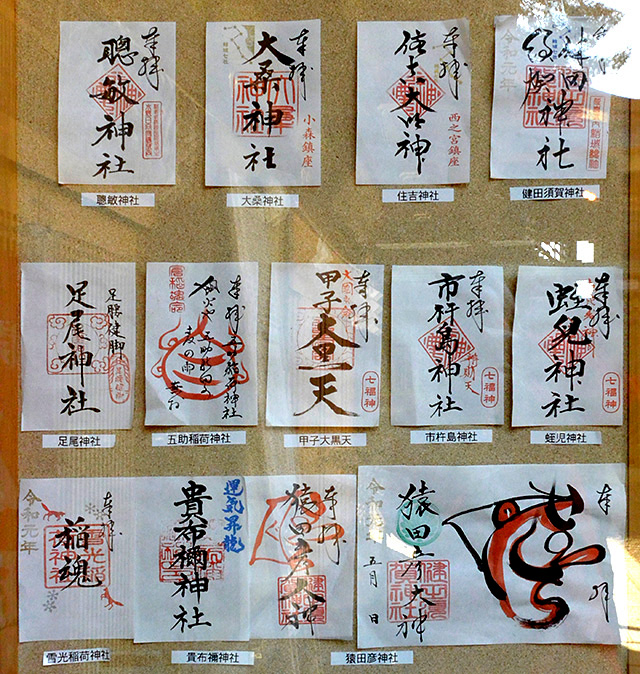 奉拝
聰敏神社
聰敏神社
奉拝
大桑神社
小森鎮座
大桑神社
奉拝
住吉大神
西之宮鎮座
住吉神社
令和元年
健田神社
須賀神社
健田須賀神社
足腰健脚
足尾神社
足尾神社
奉拝
五助稲荷神社
五助稲荷神社
奉拝
甲子大黒天
七福神
甲子大黒天
奉拝
市杵島神社
弁財天
七福神
市杵島神社
奉拝
蛭児神社
七福神
蛭児神社
奉拝
稲魂
令和元年
雪光稲荷神社
運気昇龍
貴布禰神社
貴布禰神社
奉拝
猿田彦大神
奉拝
猿田彦大神
令和元年
五月 日
猿田彦神社